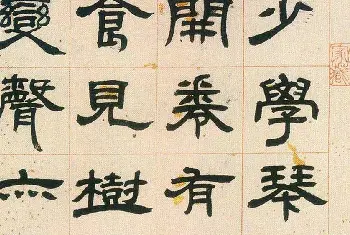 少學琴
開卷有
食見樹
變聲亦